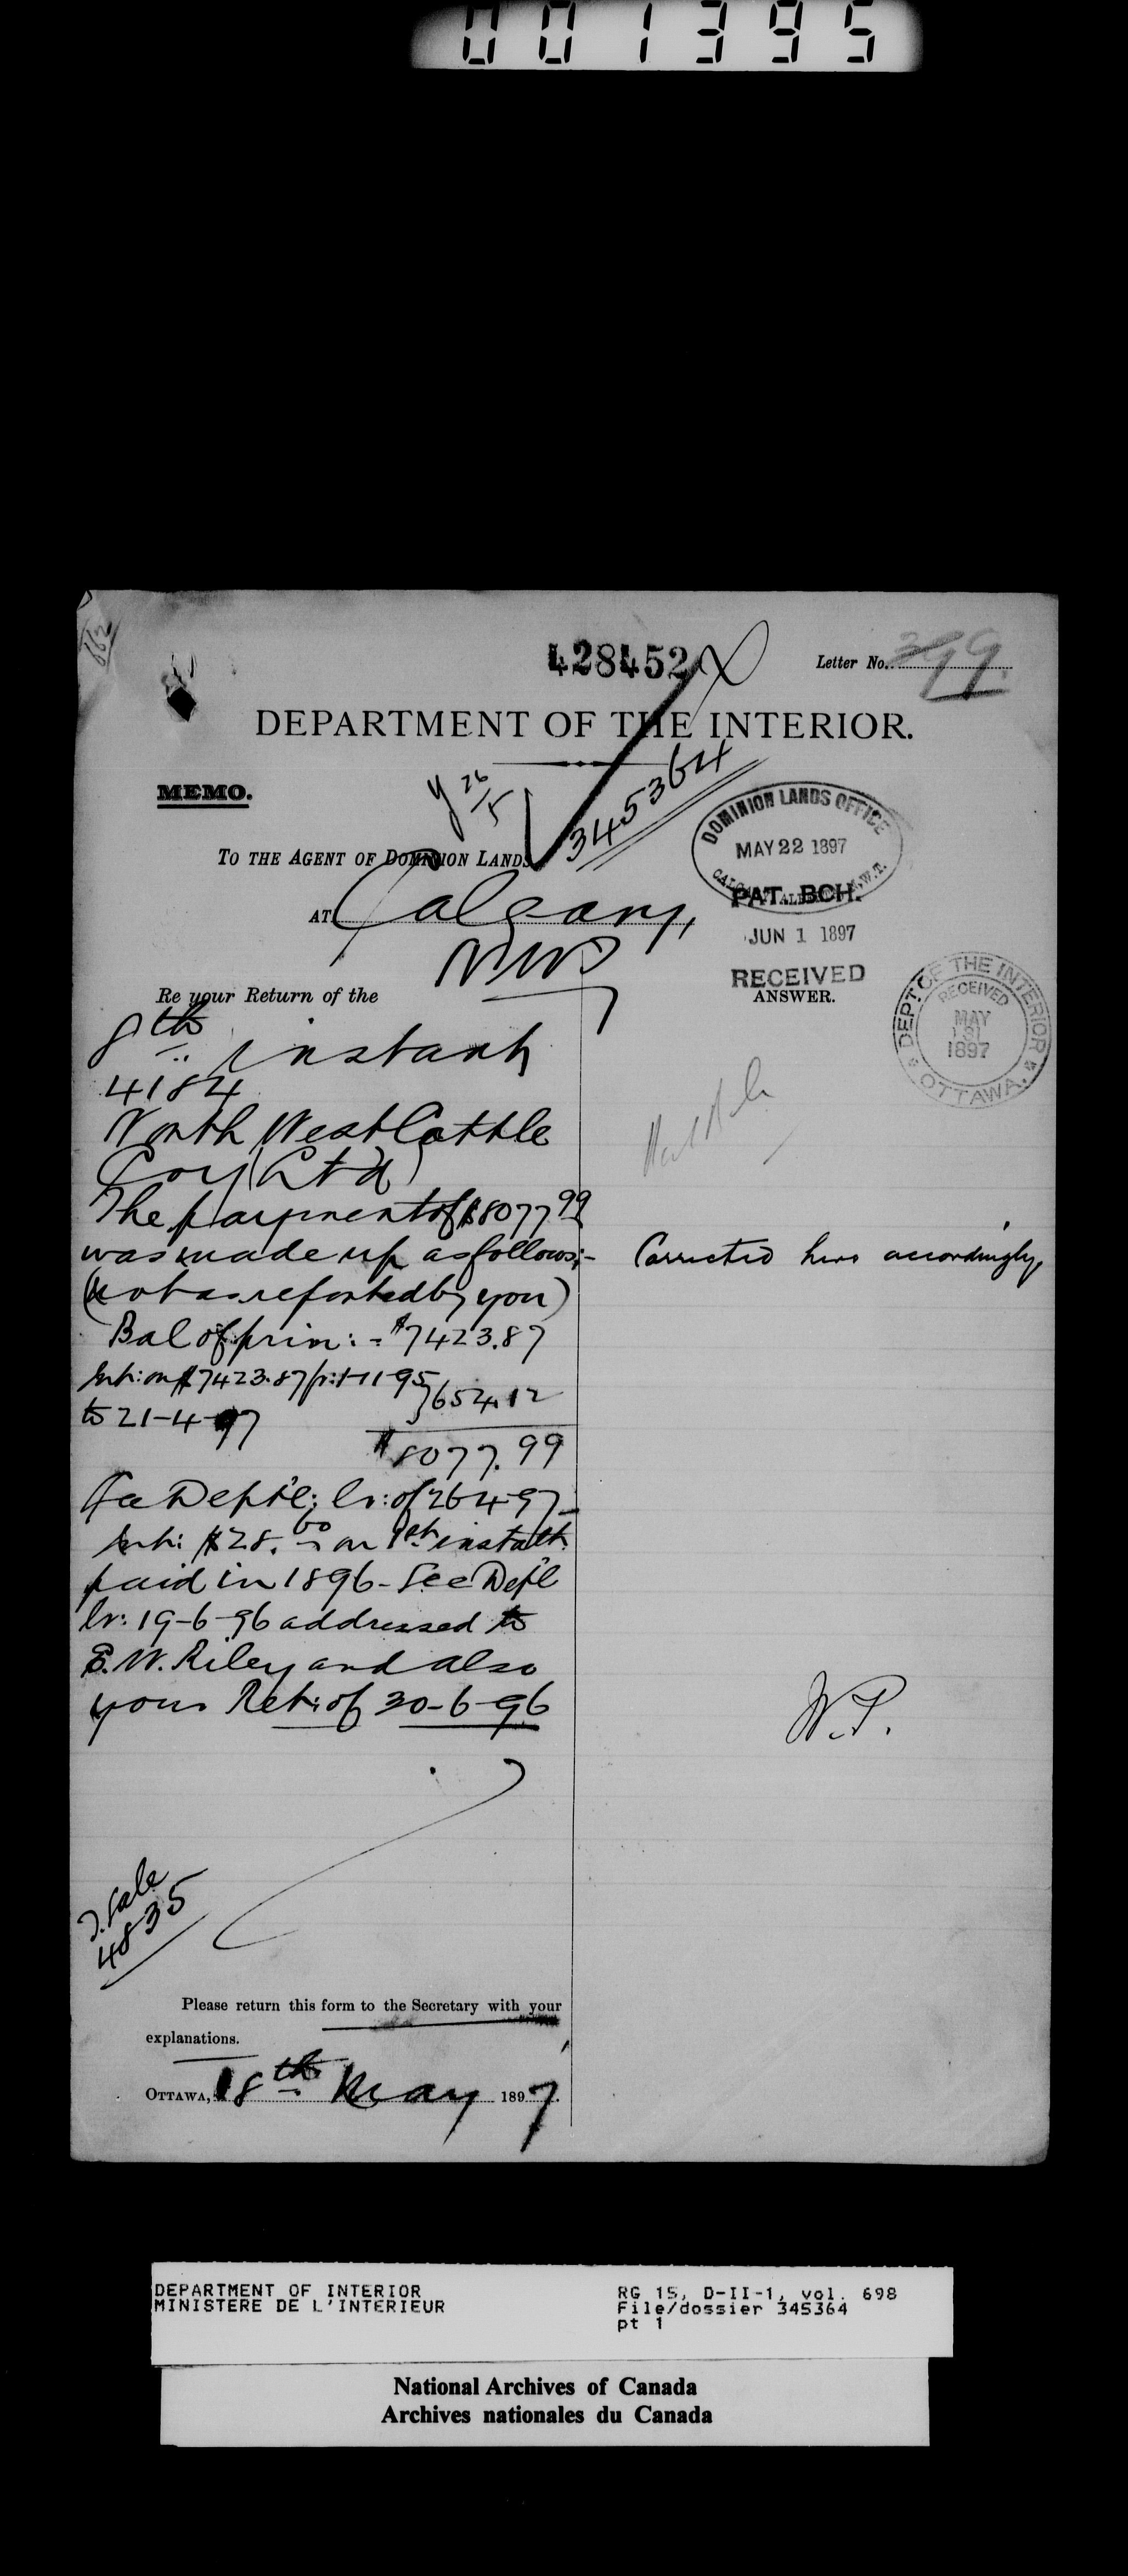 001395
428452
Letter No. 399
DEPARTMENT OF THE INTERIOR.
345364
MEMO.
y 26/5
DOMINION LANDS OFFICE
MAY 22 1897
CALGARY ALBERTA N.W.T.
TO THE AGENT OF DOMINION LANDS
PAT. BCH.
AT Calgary,
JUN 1 1897
NWT
RECEIVED
Re your Return of the
ANSWER.
DEPT. OF THE INTERIOR
RECEIVED
MAY 31 1897
OTTAWA.
8th instant
4184
North West Cattle
Coy (Ltd)
The payment of $8077.99
was made up as follows:-
Corrected here accordingly,
(not as reported by you)
Bal of prin: = $7423.87
Int: on $7423.87 fr: 1-1-95
to 21-4-97 } 654.12
$8077.99
See Dept'l: lr: of 26-4-97
Int: $28.60 on 1st instalt
paid in 1896 - See Dep'l
lr: 19-6-96 addressed to
E. W. Riley and also
your Ret: of 30-6-96
W.P.
Sale
4835
Please return this form to the Secretary with your
explanations.
OTTAWA, 18th May 1897.
DEPARTMENT OF INTERIOR
MINISTERE DE L'INTERIEUR
RG 15, D-II-1, vol. 698
File/dossier 345364
pt 1
National Archives of Canada
Archives nationales du Canada